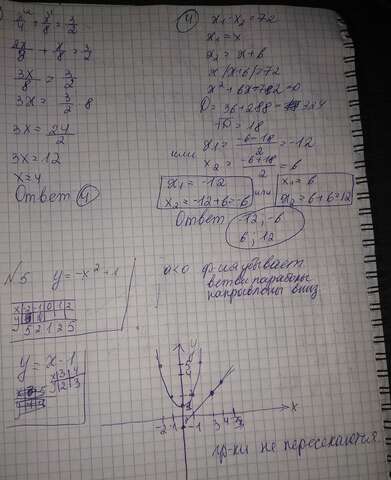 x/4 + x/8 = 3/2
2x/8 + x/8 = 3/2
3x/8 = 3/2
3x = 3/2 · 8
3x = 24/2
3x = 12
x = 4
Ответ 4
④ x₁ · x₂ = 72
x₁ = x
x₂ = x + 6
x(x+6) = 72
x² + 6x - 72 = 0
D = 36 + 288 = 324
√D = 18
x₁ = (-6-18)/2 = -12
или
x₂ = (-6+18)/2 = 6
x₁ = -12
x₂ = -12+6 = -6
или
x₁ = 6
x₂ = 6+6 = 12
Ответ -12; -6
6; 12
№5 y = -x² + 1
x -2 -1 0 1 2
y
5 2 1 2 5
a<0 ф-ия убывает
ветви параболы
направлены вниз
y = x - 1
x 3 4
y 2 3
y
5
4
-2 -1 1 3 4 5 x
гр-ки не пересекаются